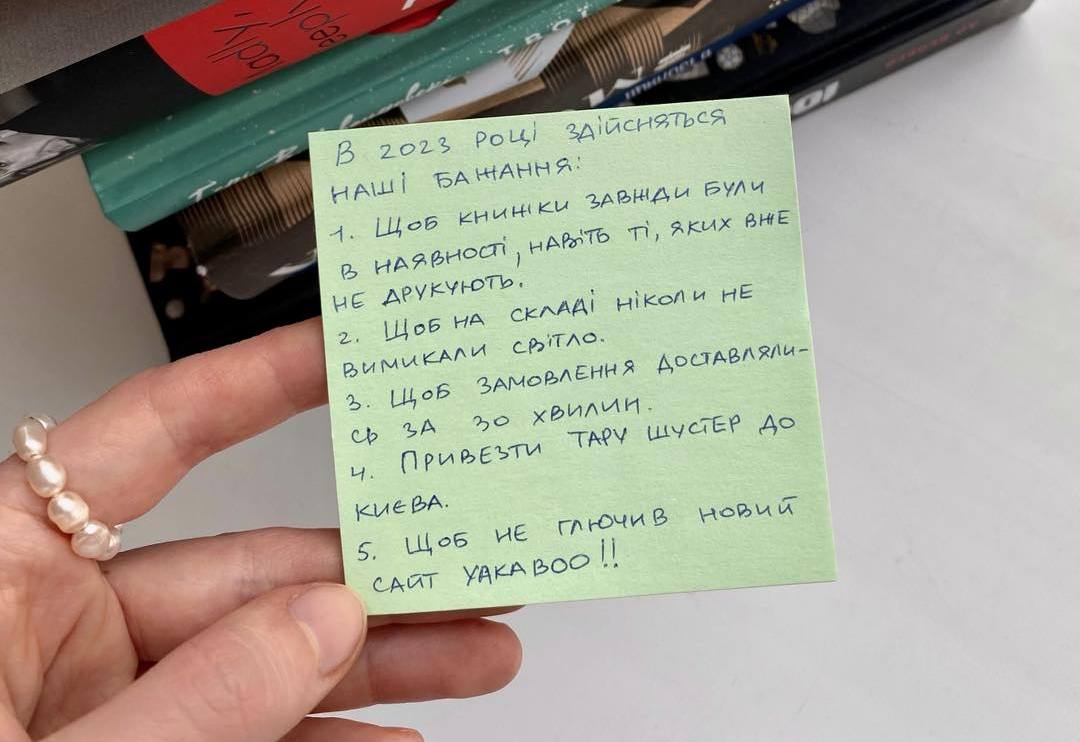 В 2023 РОЦІ ЗДІЙСНЯТЬСЯ
НАШІ БАЖАННЯ:
1. ЩОБ КНИЖКИ ЗАВЖДИ БУЛИ
В НАЯВНОСТІ, НАВІТЬ ТІ, ЯКИХ ВЖЕ
НЕ ДРУКУЮТЬ.
2. ЩОБ НА СКЛАДІ НІКОЛИ НЕ
ВИМИКАЛИ СВІТЛО.
3. ЩОБ ЗАМОВЛЕННЯ ДОСТАВЛЯЛИ-
СЬ ЗА 30 ХВИЛИН.
4. ПРИВЕЗТИ ТАРУ ШУСТЕР ДО
КИЄВА.
5. ЩОБ НЕ ГЛЮЧИВ НОВИЙ
САЙТ YAKABOO!!